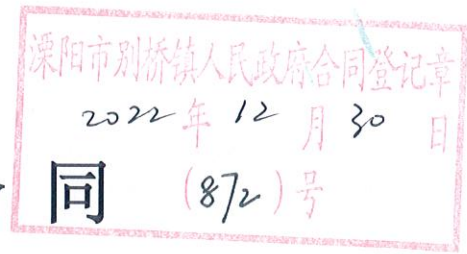 溧阳市别桥镇人民政府合同登记章
2022年12月30日
同
(872)号